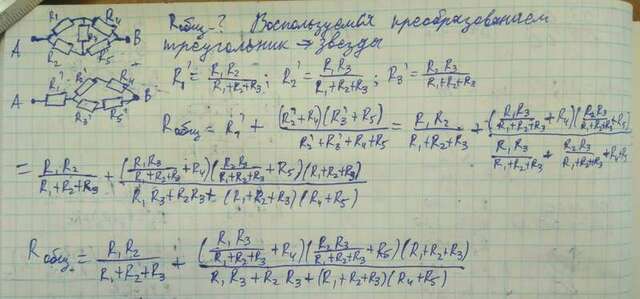 R₁ R₄ R₃ R₂ R₅ A B
Rобщ-? Воспользуемся преобразованием
треугольник → звезды
R₁' = R₁R₂/(R₁+R₂+R₃); R₂' = R₁R₃/(R₁+R₂+R₃); R₃' = R₂R₃/(R₁+R₂+R₃)
A R₁' R₂' R₄ R₃' R₅ B
Rобщ = R₁' + (R₂'+R₄)(R₃'+R₅)/(R₂'+R₃'+R₄+R₅) = R₁R₂/(R₁+R₂+R₃) + (R₁R₃/(R₁+R₂+R₃)+R₄)(R₂R₃/(R₁+R₂+R₃)+R₅)/(R₁R₃/(R₁+R₂+R₃) + R₂R₃/(R₁+R₂+R₃)+R₄+R₅)
= R₁R₂/(R₁+R₂+R₃) + (R₁R₃/(R₁+R₂+R₃)+R₄)(R₂R₃/(R₁+R₂+R₃)+R₅)(R₁+R₂+R₃)/(R₁R₃+R₂R₃+(R₁+R₂+R₃)(R₄+R₅))
Rобщ = R₁R₂/(R₁+R₂+R₃) + (R₁R₃/(R₁+R₂+R₃)+R₄)(R₂R₃/(R₁+R₂+R₃)+R₅)(R₁+R₂+R₃)/(R₁R₃+R₂R₃+(R₁+R₂+R₃)(R₄+R₅))